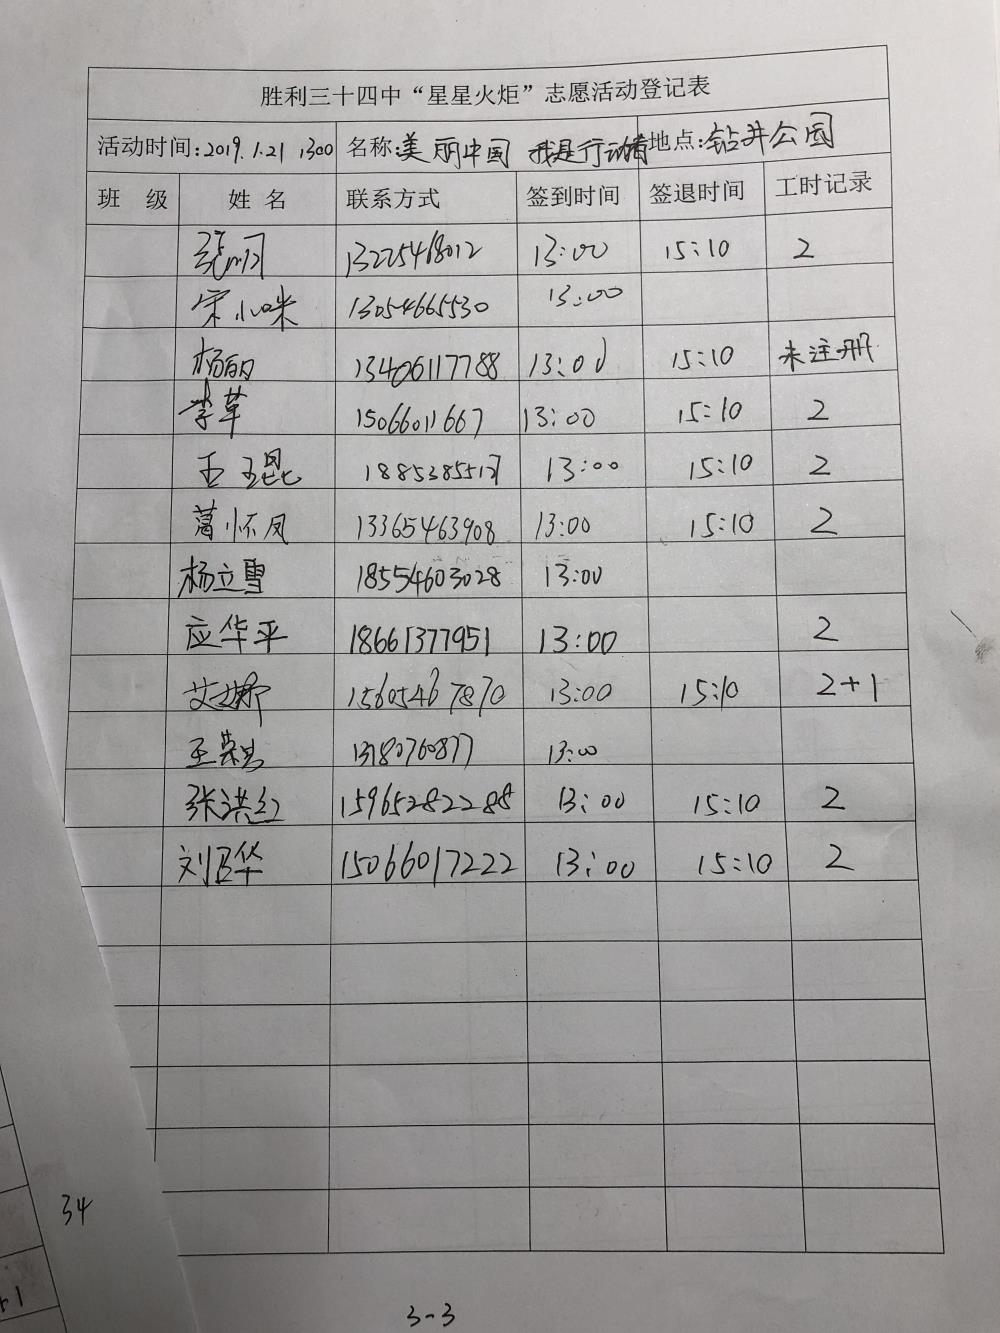 胜利三十四中“星星火炬”志愿活动登记表
活动时间:2019.1.21 1300 名称:美丽中国 我是行动者 地点:钻井公园
班 级 姓 名 联系方式 签到时间 签退时间 工时记录
13225468012 13:00 15:10 2
宋小米 13054665530 13:00
杨丽 13406117788 13:00 15:10 未注册
李革 15066011667 13:00 15:10 2
王玉昆 13:00 15:10 2
葛怀凤 13365463908 13:00 15:10 2
杨立雪 18554603028 13:00
应华平 18661377951 13:00 2
艾娜 15605467870 13:00 15:10 2+1
13180760877 13:00
张洪红 15965282288 13:00 15:10 2
刘卫华 15066017222 13:00 15:10 2
34
+1
3-3